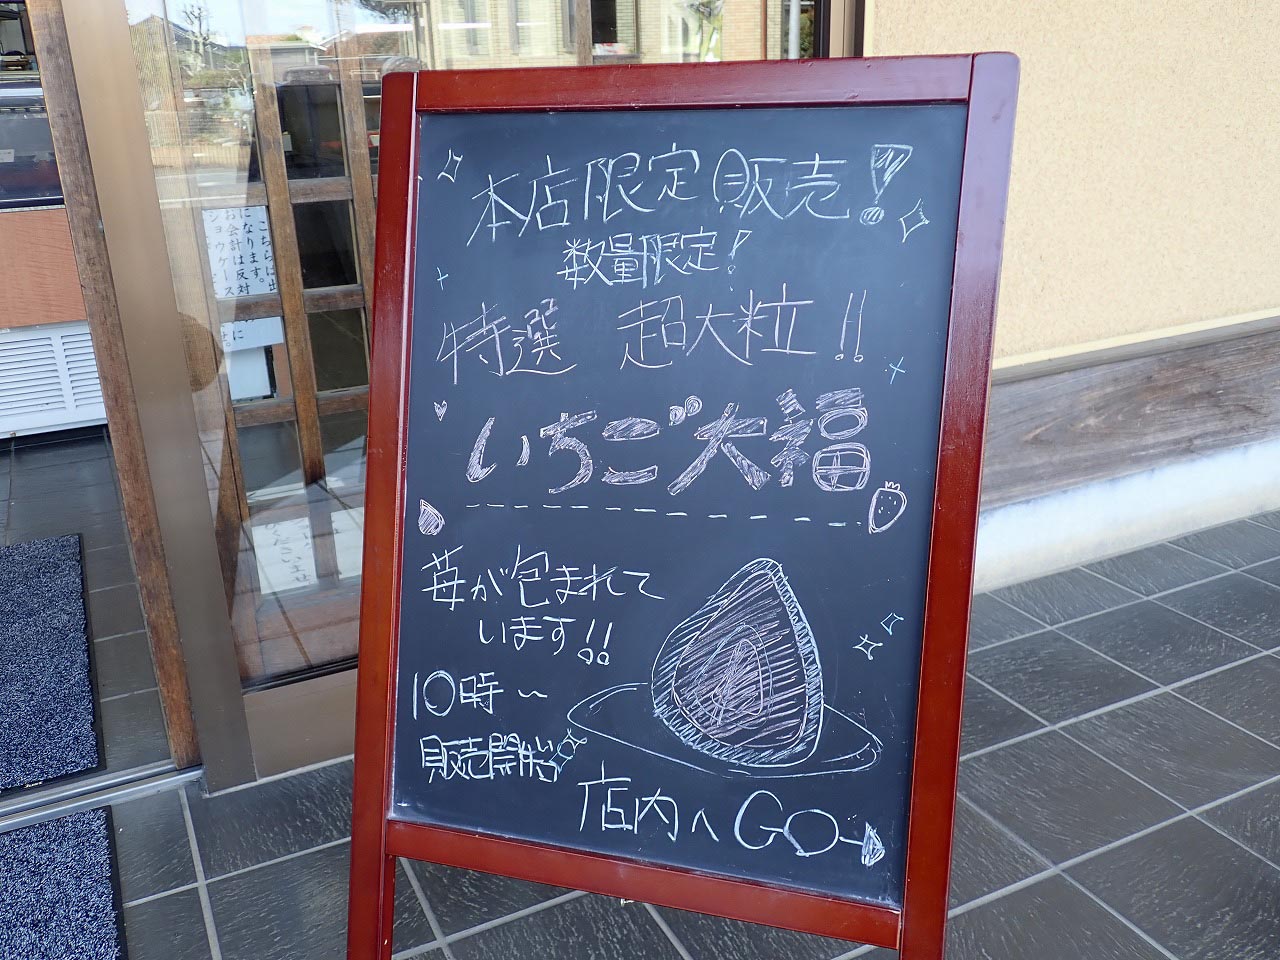 本店限定販売!
数量限定!
特選 超大粒!!
いちご大福
苺が包まれて
います!!
10時~
販売開始
店内へGO→
こちらは出
になります。
お会計は反対
ショウケース
くださいませ